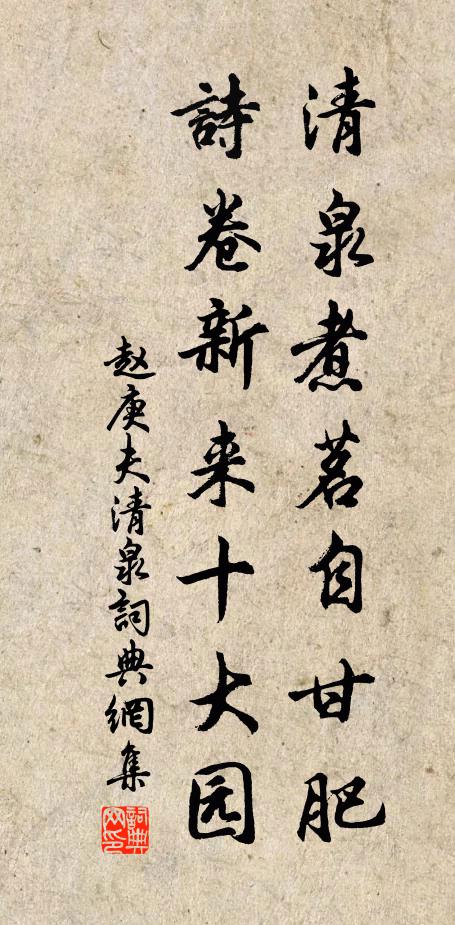 清泉煮茗自甘肥
詩卷新来十大园
赵庚夫清泉詞典網集
詞典
网印